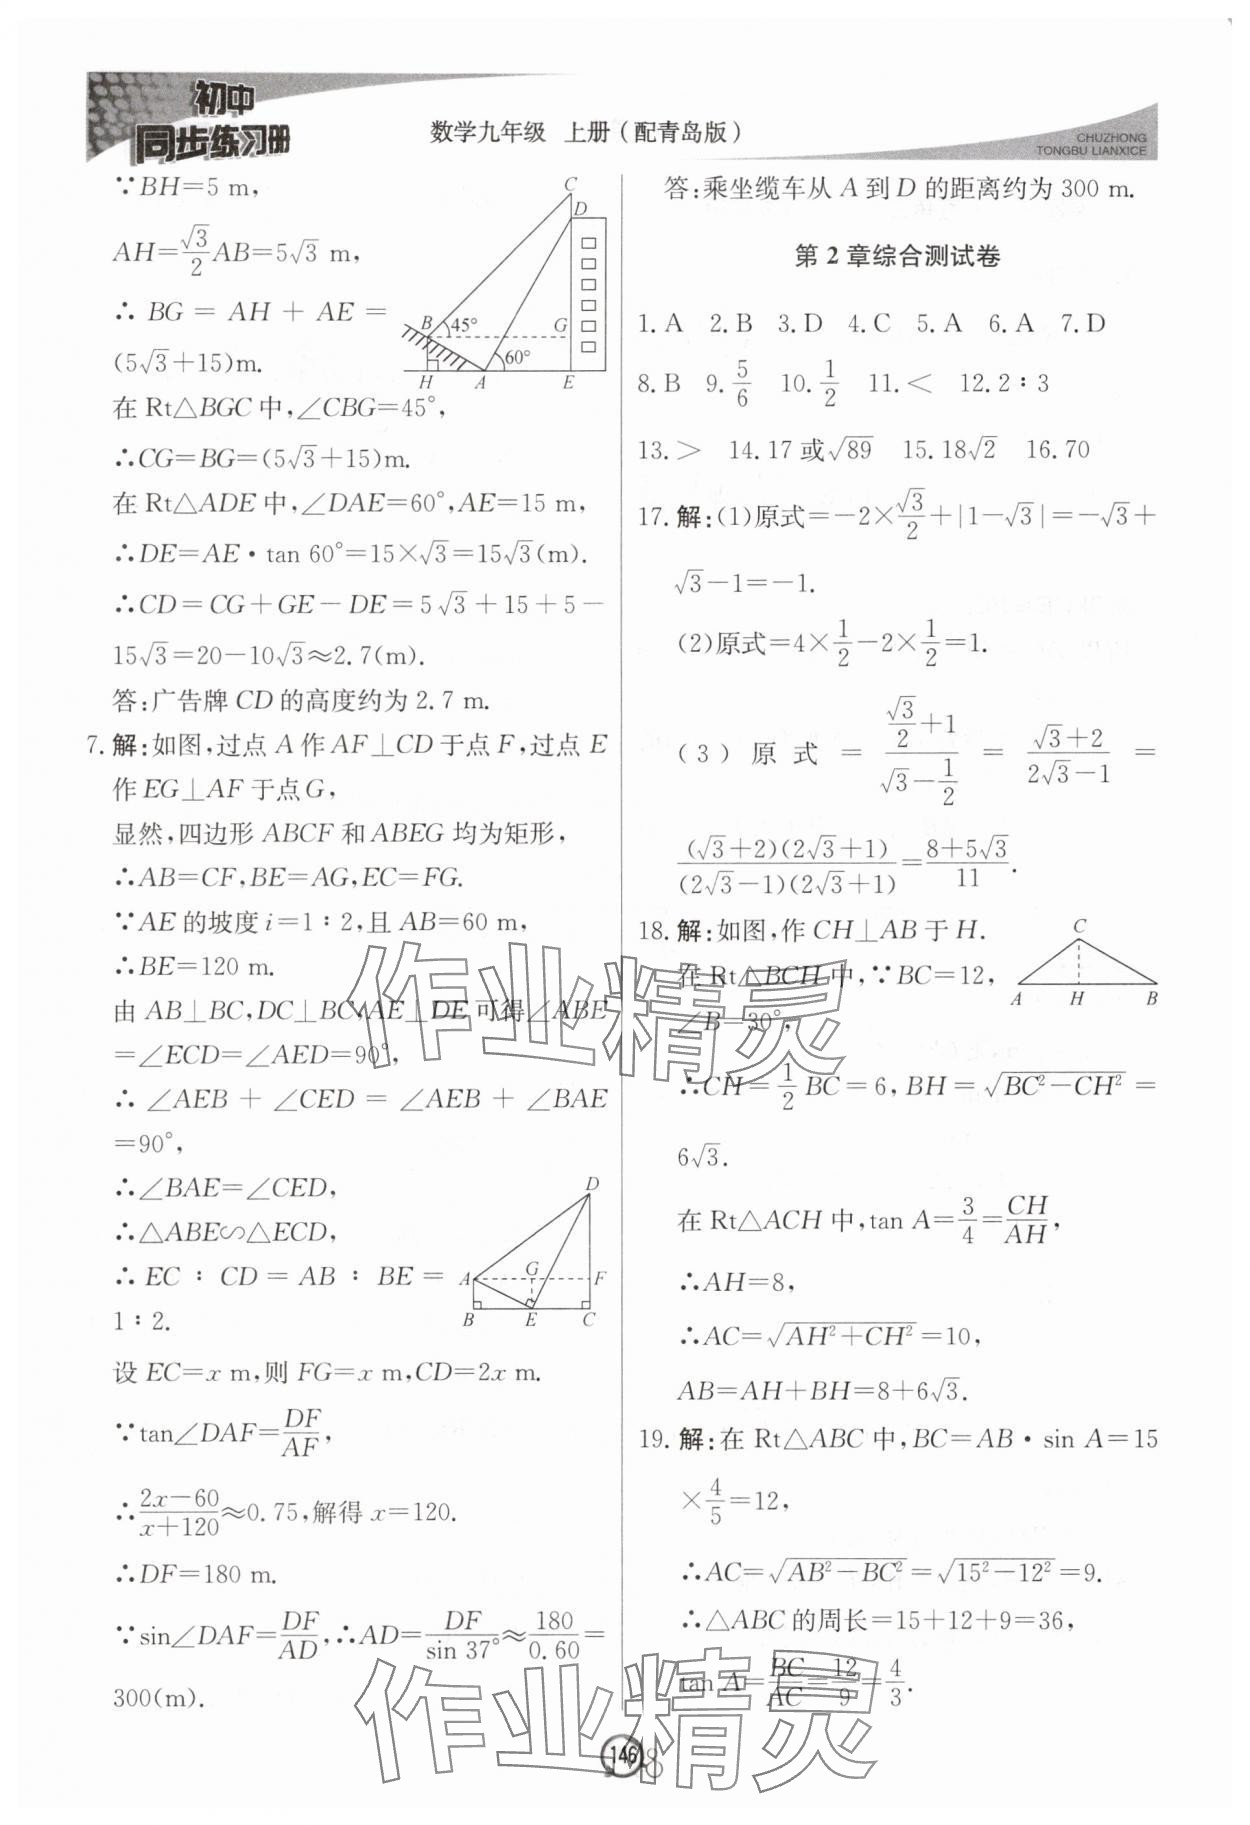 初中
同步练习册
数学九年级 上册(配青岛版)
CHUZHONG
TONGBU LIANXICE
∵BH=5 m,
AH=√3/2 AB=5√3 m,
∴ BG = AH + AE =
(5√3+15)m.
在 Rt△BGC 中,∠CBG=45°,
∴CG=BG=(5√3+15)m.
在 Rt△ADE 中,∠DAE=60°,AE=15 m,
∴DE=AE·tan 60°=15×√3=15√3(m).
∴CD=CG+GE-DE=5√3+15+5-
15√3=20-10√3≈2.7(m).
答:广告牌 CD 的高度约为 2.7 m.
C
D
B
45°
G
60°
H
A
E
7. 解:如图,过点 A 作 AF⊥CD 于点 F,过点 E
作 EG⊥AF 于点 G,
显然,四边形 ABCF 和 ABEG 均为矩形,
∴AB=CF,BE=AG,EC=FG.
∵AE 的坡度 i=1∶2,且 AB=60 m,
∴BE=120 m.
由 AB⊥BC,DC⊥BC,AE⊥DE 可得∠ABE
=∠ECD=∠AED=90°,
∴ ∠AEB + ∠CED = ∠AEB + ∠BAE
=90°,
∴∠BAE=∠CED,
∴△ABE∽△ECD,
∴ EC ∶ CD = AB ∶ BE =
1∶2.
D
A
G
F
B
E
C
设 EC=x m,则 FG=x m,CD=2x m.
∵tan∠DAF=DF/AF,
∴(2x-60)/(x+120)≈0.75,解得 x=120.
∴DF=180 m.
∵sin∠DAF=DF/AD,∴AD=DF/sin 37°≈180/0.60=
300(m).
答:乘坐缆车从 A 到 D 的距离约为 300 m.
第 2 章综合测试卷
1. A 2. B 3. D 4. C 5. A 6. A 7. D
8. B 9. 5/6 10. 1/2 11. < 12. 2∶3
13. > 14. 17 或√89 15. 18√2 16. 70
17. 解:(1)原式=-2×√3/2+|1-√3|=-√3+
√3-1=-1.
(2)原式=4×1/2-2×1/2=1.
(3)原式=(√3/2+1)/(√3-1/2)=(√3+2)/(2√3-1)=
(√3+2)(2√3+1)/(2√3-1)(2√3+1)=(8+5√3)/11.
18. 解:如图,作 CH⊥AB 于 H.
在 Rt△BCH 中,∵BC=12,
∠B=30°,
C
A
H
B
∴CH=1/2 BC=6,BH=√(BC²-CH²)=
6√3.
在 Rt△ACH 中,tan A=3/4=CH/AH,
∴AH=8,
∴AC=√(AH²+CH²)=10,
AB=AH+BH=8+6√3.
19. 解:在 Rt△ABC 中,BC=AB·sin A=15
×4/5=12,
∴AC=√(AB²-BC²)=√(15²-12²)=9.
∴△ABC 的周长=15+12+9=36,
tan A=BC/AC=12/9=4/3.
作业精灵
作业精灵
146